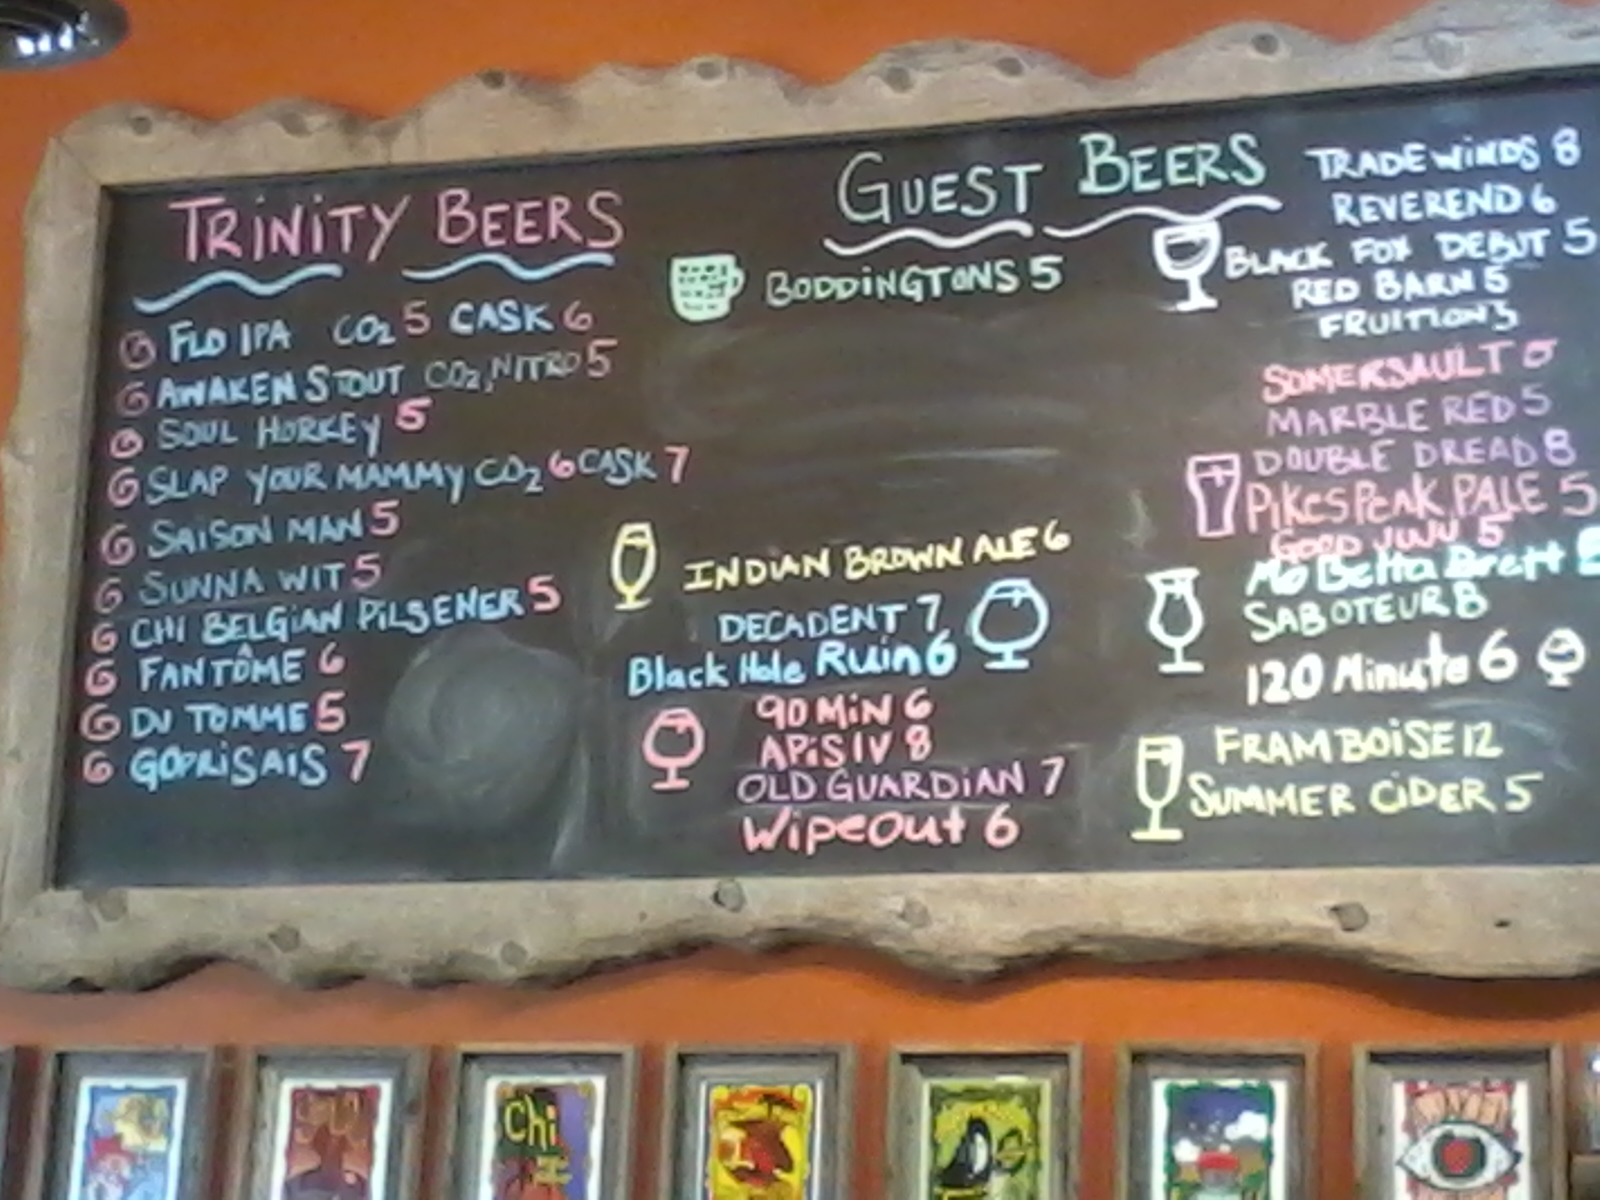 TRINITY BEERS
G FLO IPA CO2 5 CASK 6
G AWAKEN STOUT CO2, NITRO 5
G SOUL HORKEY 5
G SLAP YOUR MAMMY CO2 6 CASK 7
G SAISON MAN 5
G SUNNA WIT 5
G CHI BELGIAN PILSENER 5
G FANTÔME 6
G DJ TOMME 5
G 7
GUEST BEERS
BODDINGTONS 5
INDIAN BROWN ALE 6
DECADENT 7
Black Hole Ruin 6
90 MIN 6
APIS IV 8
OLD GUARDIAN 7
Wipeout 6
TRADEWINDS 8
REVEREND 6
BLACK FOX DEBUT 5
RED BARN 5
FRUITION 5
SOMERSAULT 5
MARBLE RED 5
DOUBLE DREAD 8
PIKES PEAK PALE 5
GOOD JUJU 5
Mo Betta Brett
SABOTEUR 8
120 Minute 6
FRAMBOISE 12
SUMMER CIDER 5
Chi